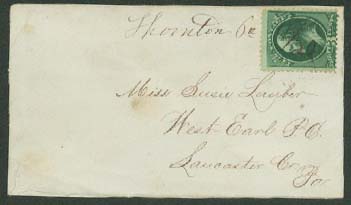 Thornton Pa
Miss Susie Lauber
West Earl P.O.
Lancaster Co
Pa